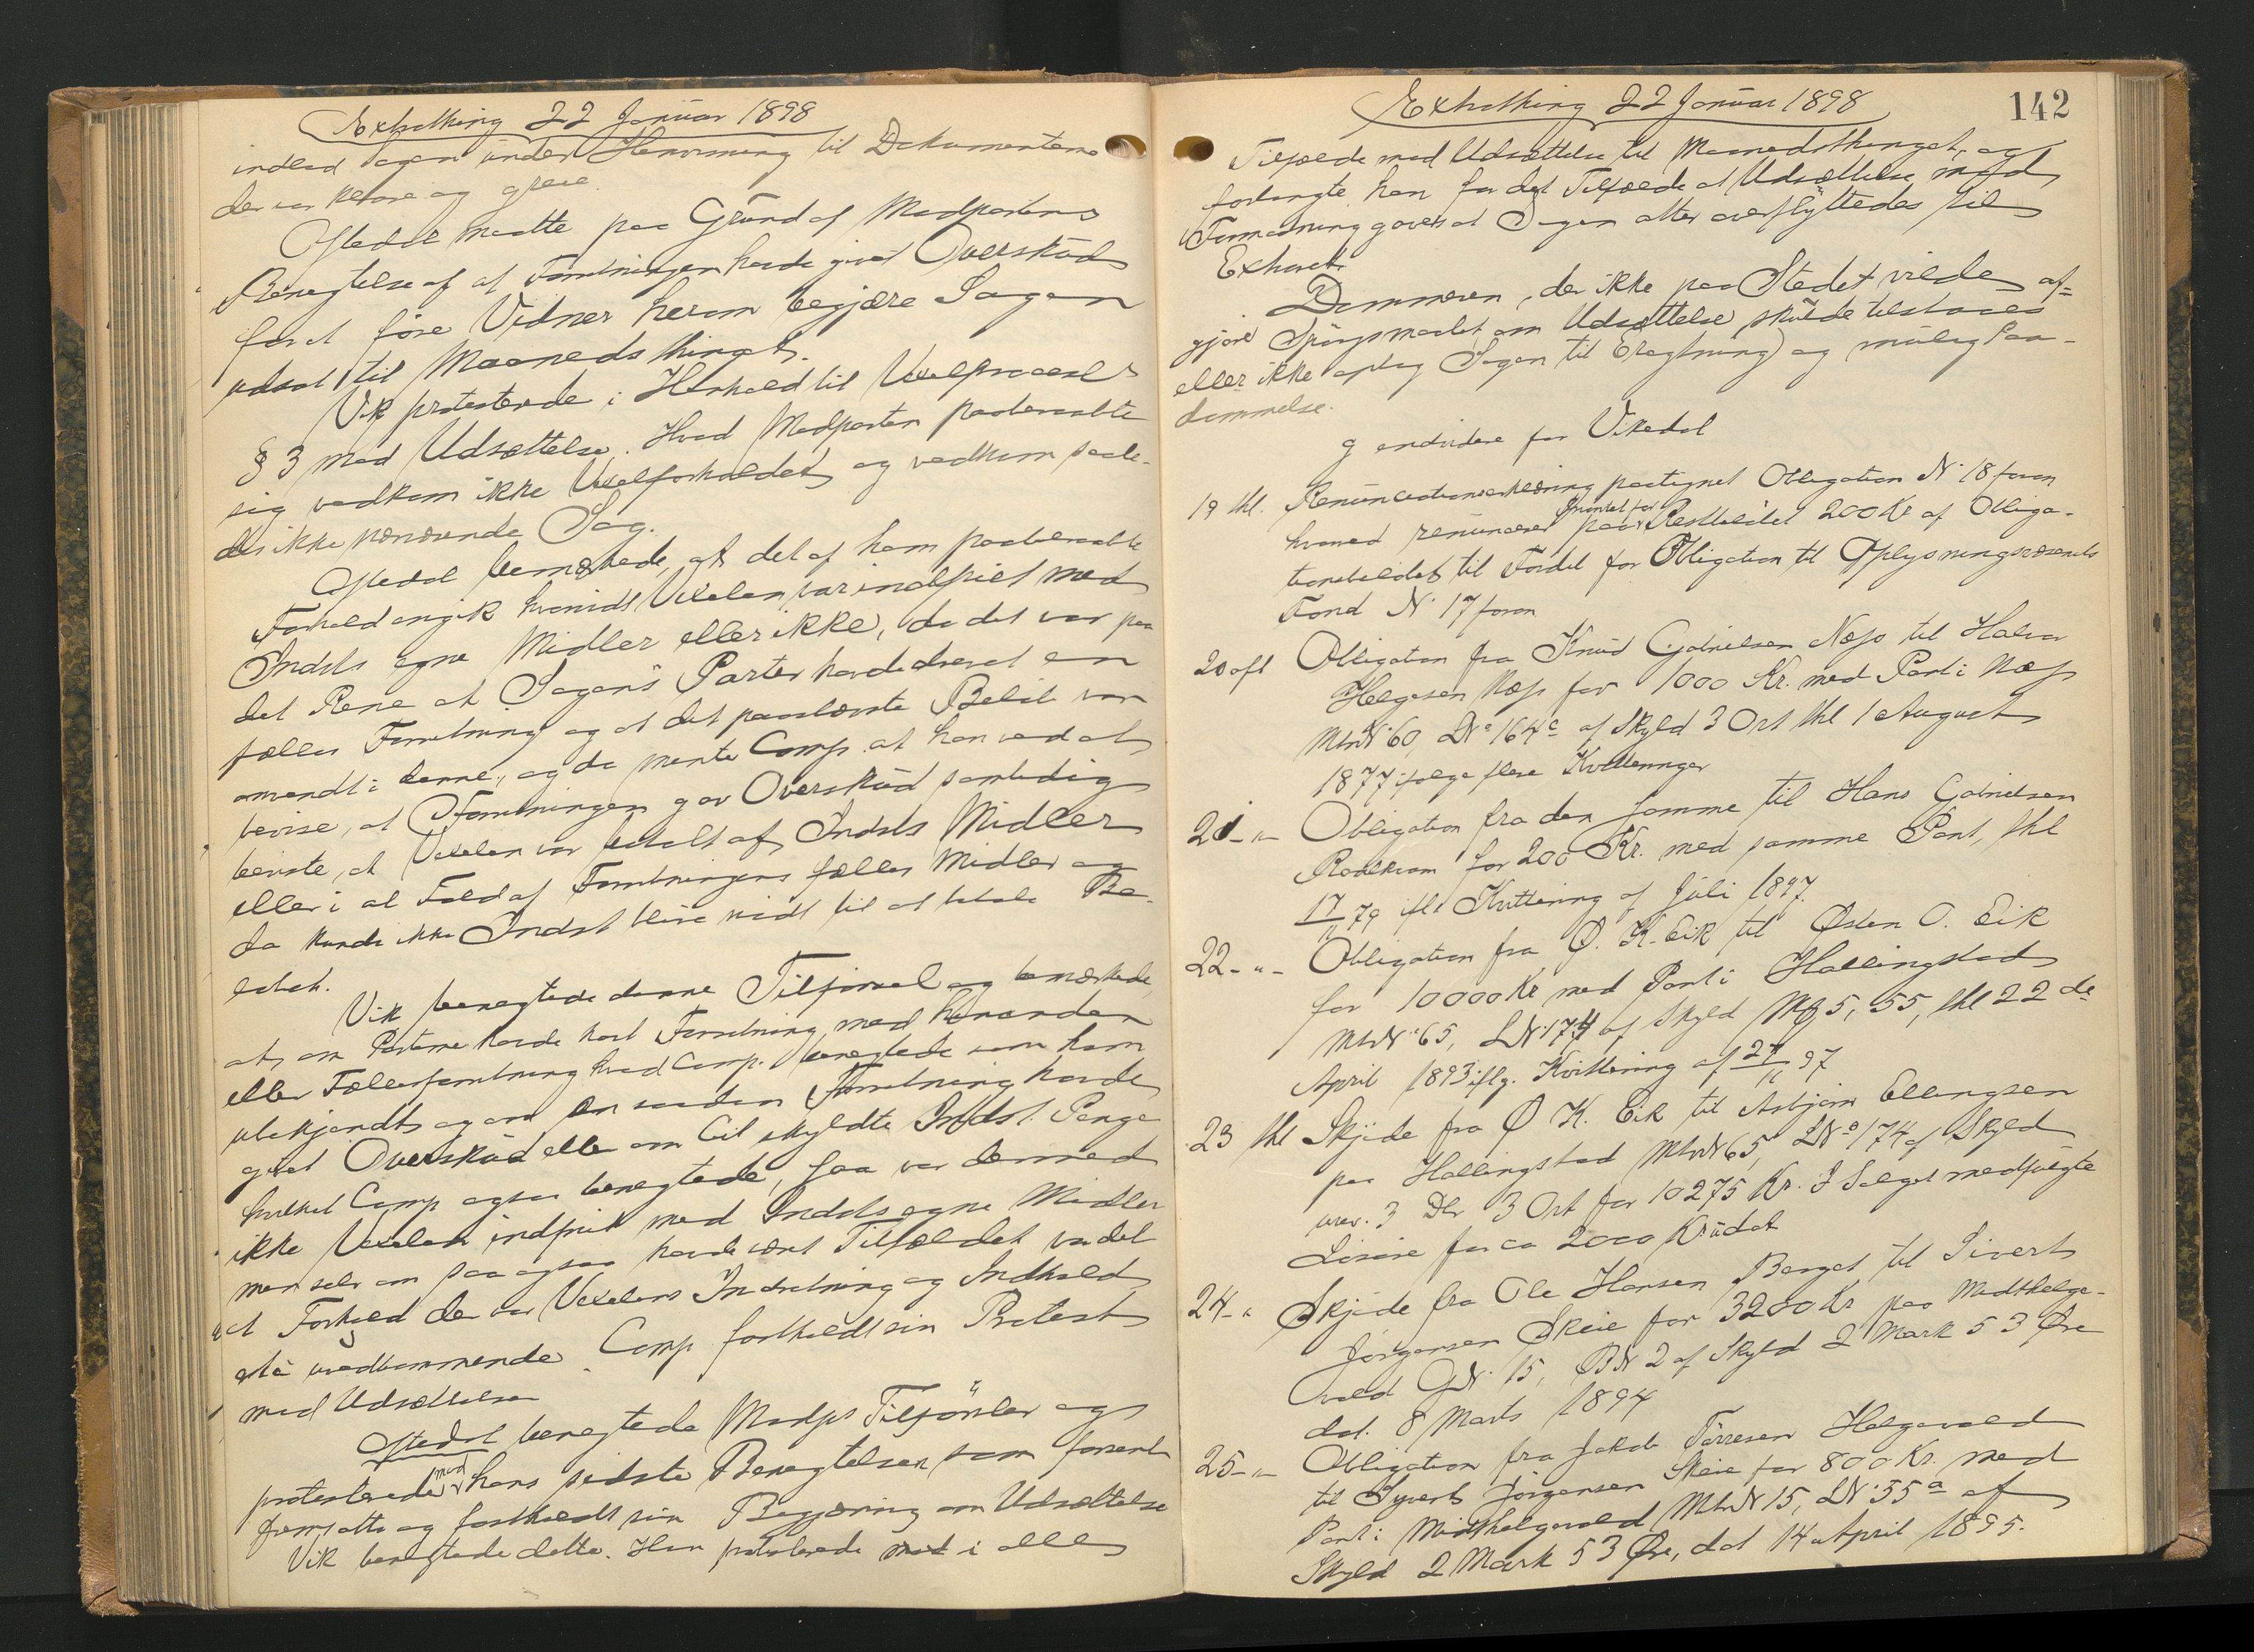 Extrathing 22 Januar 1898
indlod Sagen under Henvisning til Dokumenterne
der var klare og greie.
Oftedal maatte paa Grund af Modpartens
Benegtelse af at Forretningen havde givet Overskud
for at före Vidner herom begjære Sagen
udsat til Maanedsthinget.
Vik protesterede i Henhold til Vexelprocesl
§ 3 mod Udsættelse. Hvad Modparten paaberaabte
sig vedkom ikke Vexelforholdet og vedkom saale-
des ikke nærværende Sag.
Oftedal bemærkede, at det af ham paaberaabte
Forhold angik hvorvidt Vexelen var indfriet med
Indsts egne Midler eller ikke, da det var paa
det Rene at Sagens Parter havde drevet en
fælles Forretning og at det paastævnte Belöb var
anvendt i denne, og da mente Comp. at han ved at
bevise, at Forretningen gav Overskud samtidig
beviste, at Vexelen var betalt af Indsts Midler
eller i al Fald af Forretningens fælles Midler og
da kunde ikke Indst blive nödt til at betale Be-
löbet.
Vik benegtede denne Tilförsel og bemærkede
at, om Parterne havde havt Forretning med hinanden
eller Fællesforretning hvad Comp. benegtede som ham
ubekjendt og om en saadan Forretning havde
givet Overskud eller om Cit skyldte Indst. Penge
hvilket Comp ogsaa benegtede, saa var dermed
ikke Vexelen indfriet med Indsts egne Midler
men selv om saa ogsaa havde været Tilfældet var det
et Forhold der var Vexelens Indretning og Indhold
uvedkommende. Comp fastholdt sin Protest
mod Udsættelse
Oftedal benegtede Modps Tilförsler og
protesterede mod hans sidste Benegtelser som forsent
fremsatte og fastholdt sin Begjæring om Udsættelse
Vik benegtede dette. Han protesterede mod i alle
Extrathing 22 Januar 1898
142
Tilfælde mod Udsættelse til Maanedsthinget, og
forlangte han for det Tilfælde at Udsættelse mod
Formodning gaves at Sagen atter overflyttedes til
Extraret.
Dommeren, der ikke paa Stedet vilde af-
gjöre Spörgsmaalet om Udsættelse skulde tilstaaes
eller ikke optog Sagen til Eragtning og mulig Paa-
dömmelse.
g endvidere for Vikedal
19 thl. Renunciationserklæring paategnet Obligation N. 18 foran
hvorved renunceres Prioritet for paa Restbelöbet 200 Kr af Obliga-
tionsbelöbet til Fordel for Obligation til Oplysningsvæsenets
Fond N. 17 foran
20 afl Obligation fra Knud Gabrielsen Næss til Halvor
Helgesen Næss for 1000 Kr. med Pant i Næss
MtrN. 60, LNo 164c af Skyld 3 Ort thl 1 August
1877 ifölge flere Kvitteringer
21 - " - Obligation fra den samme til Hans Gabrielsen
Roalkvam for 200 Kr. med samme Pant, thl
17/11 79 iflg Kvittering af Juli 1897.
22 - " - Obligation fra Ø. K. Eik til Østen O. Eik
for 10000 Kr med Pant i Hallingstad
MtrN. 65, LN. 174 af Skyld Mk 5, 55, thl 22de
April 1893 iflg. Kvittering af 24/11 97
23 thl Skjöde fra Ø K. Eik til Asbjörn Ellingsen
paa Hallingstad MtrN 65, LNo 174 af Skyld
urev. 3 Dlr 3 Ort for 10275 Kr. I Salget medfulgte
Lösöre for ca 2000 Kr. udat
24 - " Skjöde fra Ole Hansen Berget til Sivert
Jörgensen Skeie for 3200 Kr paa Midthelge-
vold GN. 15, BN 2 af Skyld 2 Mark 53 Øre
dat. 8 Marts 1894
25 - " - Obligation fra Jakob Törresen Helgevold
til Syvert Jörgensen Skeie for 800 Kr. med
Pant i Midthelgevold MtrN 15, LN. 55a af
Skyld 2 Mark 53 Øre, dat 14 April 1895.